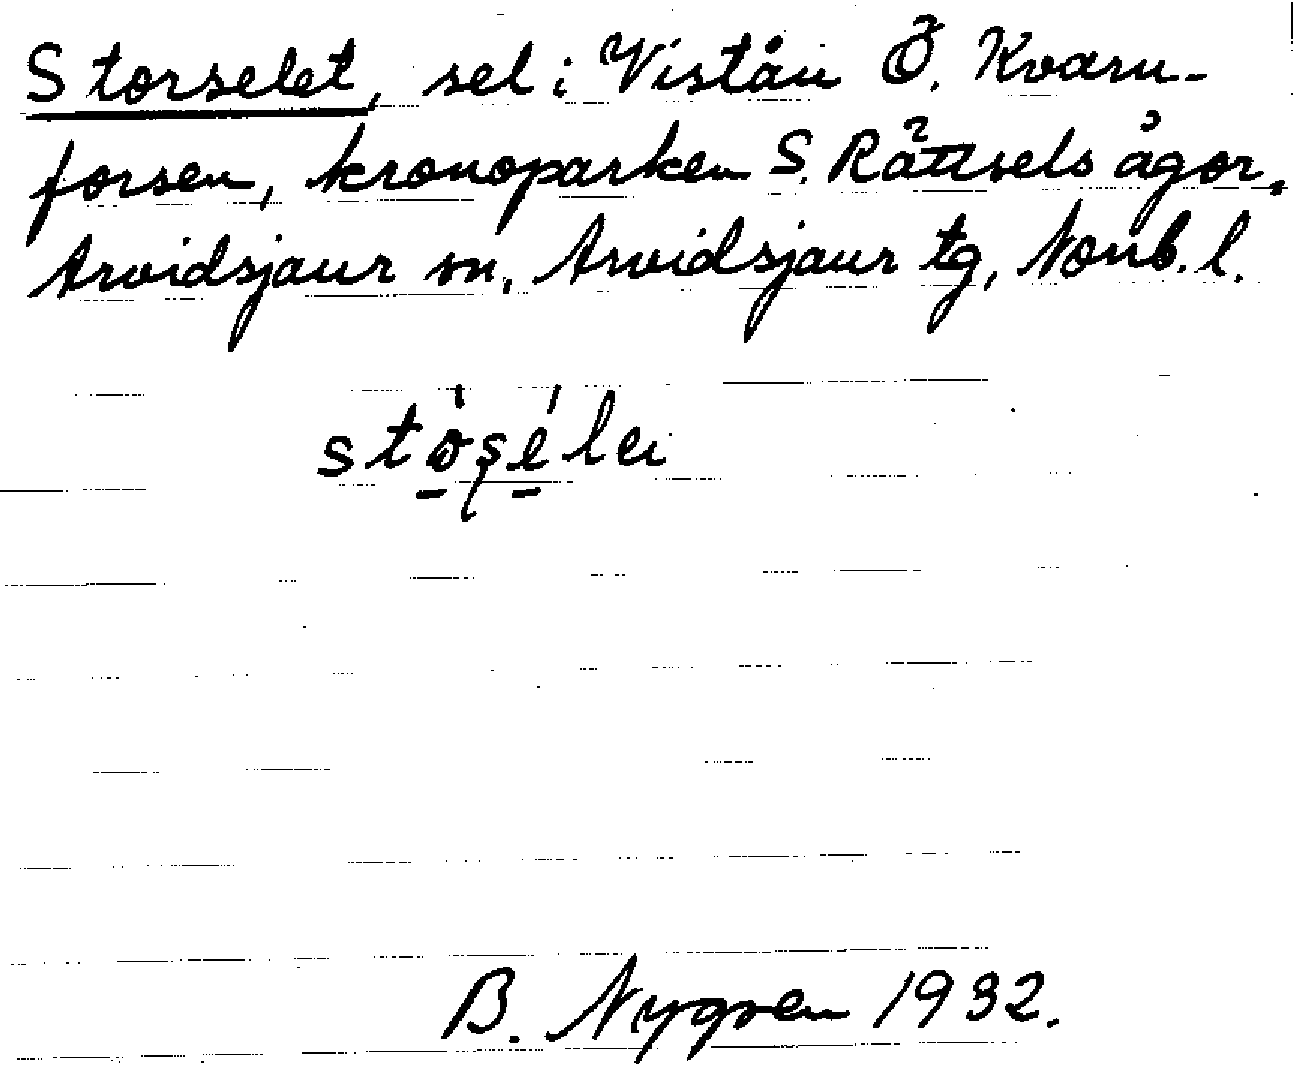 Storselet, sel i Viståu Ö. Kvarn-
forsen, kronoparken S. Rättsels ägor,
Arvidsjaur sn, Arvidsjaur tg, Norrb. l.
B. Nygren 1932.